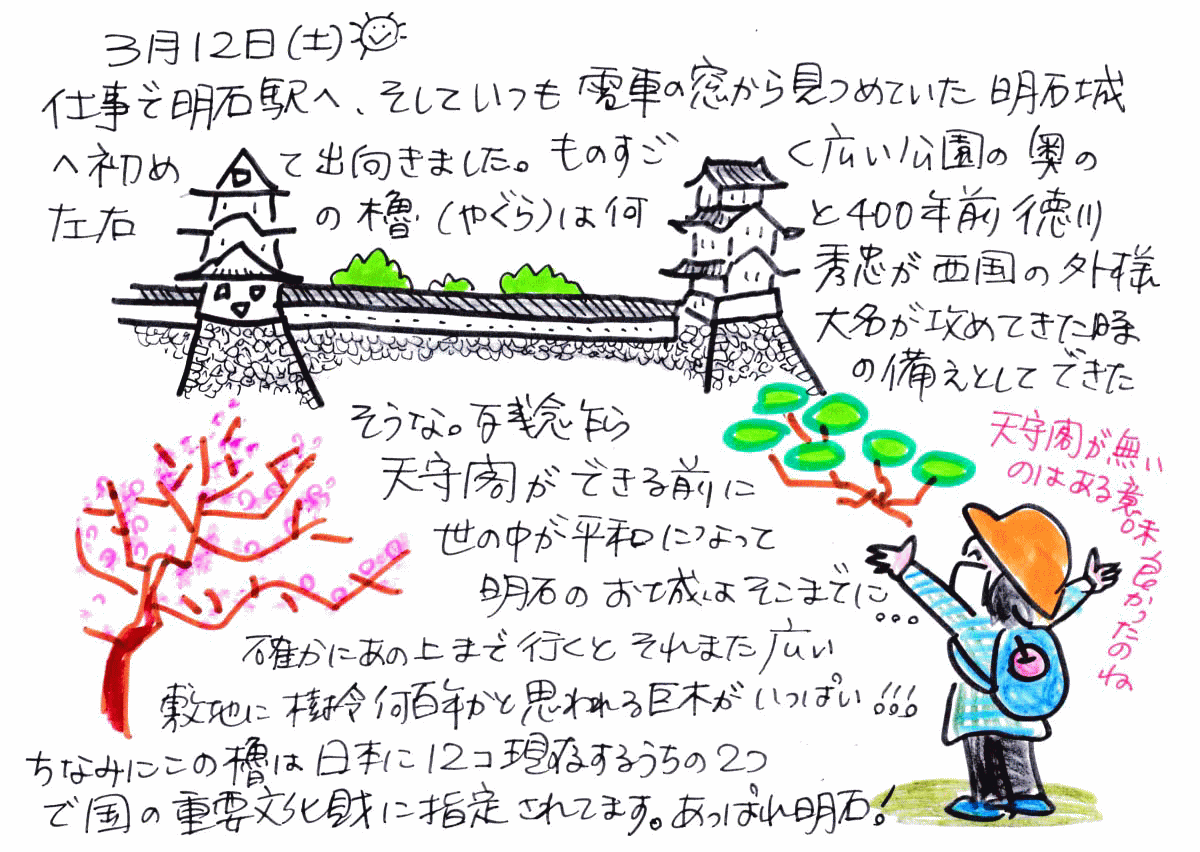 3月12日(土)
仕事で明石駅へ、そしていつも電車の窓から見つめていた明石城
へ初めて出向きました。ものすごく広い公園の奥の
左右の櫓(やぐら)は何と400年前徳川
秀忠が西国の外様
大名が攻めてきた時
の備えとしてできた
そうな。残念乍ら
天守閣ができる前に
世の中が平和になって
明石のお城はそこまでに...
確かにあの上まで行くとそれまた広い
敷地に樹令何百年かと思われる巨木がいっぱい!!!
ちなみにこの櫓は日本に12コ現存するうちの2つ
で国の重要文化財に指定されてます。あっぱれ明石!
天守閣が無い
のはある意味良かったのね